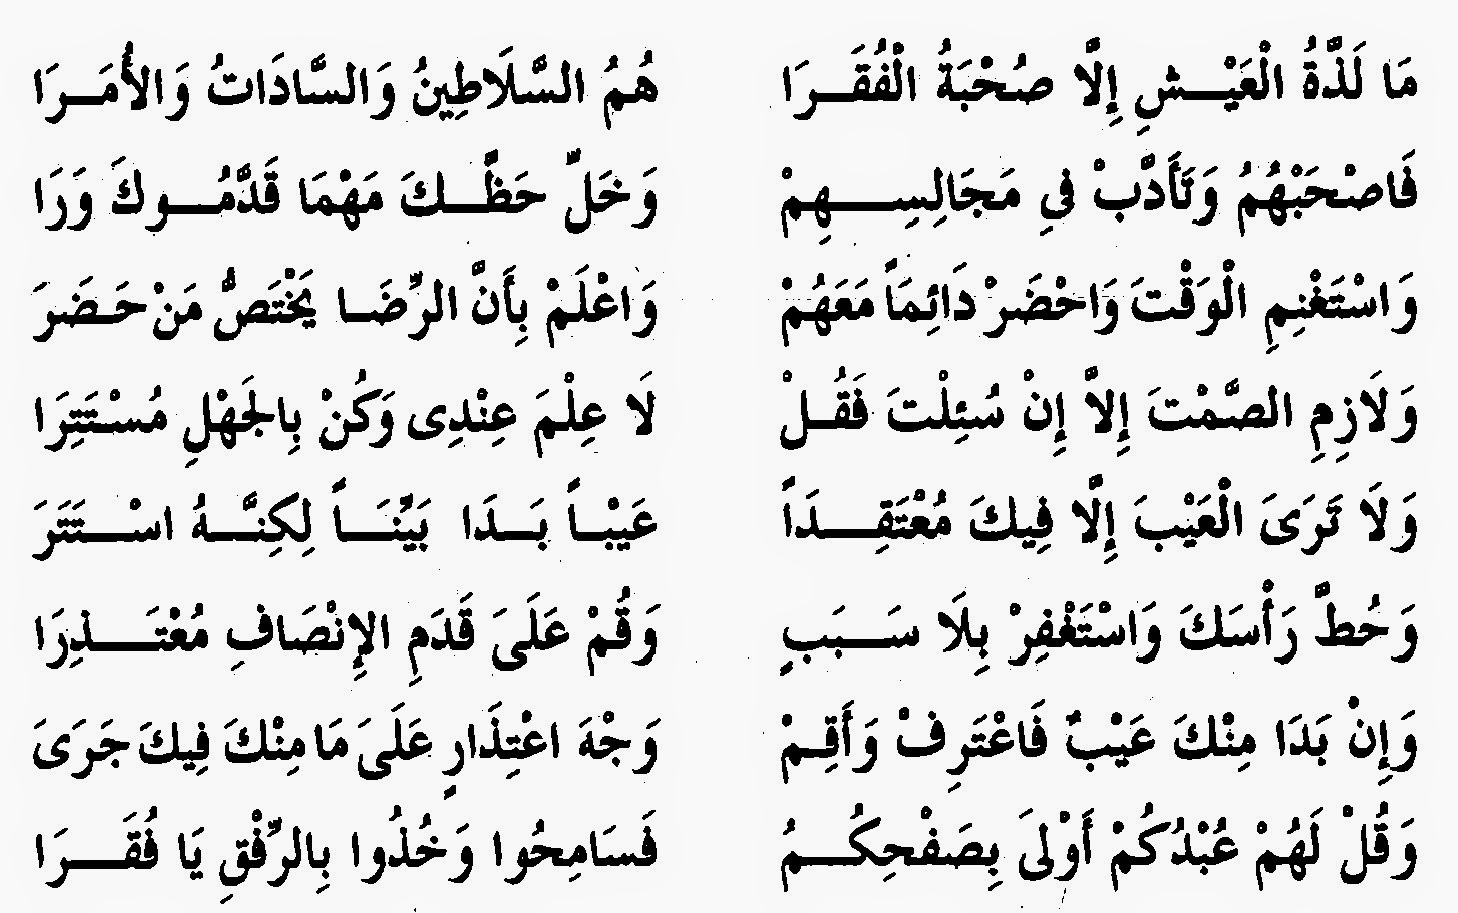 مَا لَذَّةُ الْعَيْـــشِ إِلَّا صُحْبَةُ الْفُقَـــرَا هُمُ السَّلَاطِينُ وَالسَّادَاتُ وَالأُمَـــرَا
فَاصْحَبْهُمُ وَتَأَدَّبْ فِي مَجَالِسِـــهِمْ وَخَلِّ حَظَّـــكَ مَهْمَا قَدَّمُـــوكَ وَرَا
وَاسْتَغْنِمِ الْوَقْتَ وَاحْضَرْ دَائِمَاً مَعَهُمْ وَاعْلَمْ بِأَنَّ الرِّضَـا يَخْتَصُّ مَنْ حَـضَرَ
وَلَازِمِ الصَّمْتَ إِلاَّ إِنْ سُئِلْتَ فَقُـلْ لَا عِلْمَ عِنْدِى وَكُنْ بِالجَهْلِ مُسْتَتِرَا
وَلَا تَرَىَ الْعَيْبَ إِلَّا فِيكَ مُعْتَقِـــدَاً عَيْبْـاً بَـدَا بَيِّنَـــاً لِكِنـَّــهُ اسْـــتَتَرَ
وَحُطَّ رَأْسَكَ وَاسْتَغْفِرْ بِلَا سَـــبَبٍ وَقُمْ عَلَىَ قَدَمِ الإِنْصَافِ مُعْتَـــذِرَا
وَإِنْ بَدَا مِنْكَ عَيْبٌ فَاعْتَرِفْ وَأَقِمْ وَجْهَ اعْتِذَارٍ عَلَىَ مَا مِنْكَ فِيكَ جَرَىَ
وَقُلْ لَهُمْ عُبْدُكُمْ أَوْلىَ بِصَفْحِكُـــمُ فَسَامِحُوا وَخُذُوا بِالرِّفْقِ يَا فُقَـــرَا